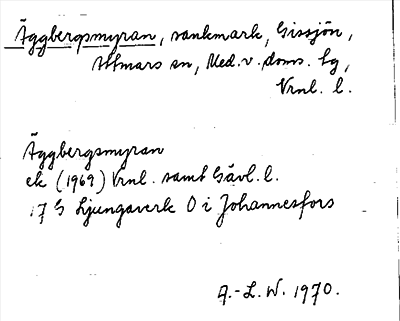 Äggbergsmyran, sankmark, Gissjön,
Attmars sn, Med.v. doms. lg,
Vrnl. l.
Äggbergsmyran
ek (1969) Vrnl. samt Gävl. l.
17 G Ljungaverk O i Johannesfors
A.-L. W. 1970.